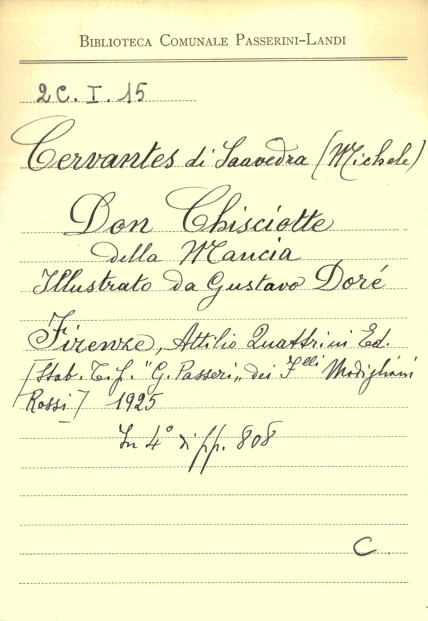 BIBLIOTECA COMUNALE PASSERINI-LANDI
2C. I. 15
Cervantes di Saavedra (Michele)
Don Chisciotte
della Mancia
Illustrato da Gustavo Doré
Firenze, Attilio Quattrini Ed.
[Stab. Tip. "G. Passeri" dei Flli Modigliani
Rossi] 1925
In 4° di pp. 808
C